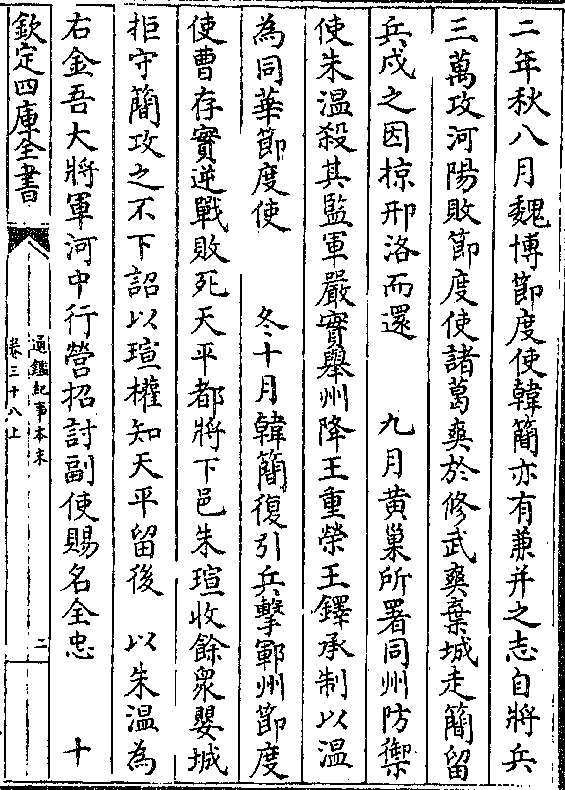 二年秋八月魏博節度使韓簡亦有兼并之志自將兵
三萬攻河陽敗節度使諸葛爽於修武爽棄城走簡留
兵戍之因掠邢洺而還　九月黄巢所署同州防禦
使朱溫殺其監軍嚴實舉州降王重榮王鐸承制以溫
為同華節度使　冬十月韓簡復引兵擊鄆州節度
使曹存實逆戰敗死天平都將下邑朱瑄收餘衆嬰城
拒守簡攻之不下詔以瑄權知天平留後　以朱溫為
右金吾大將軍河中行營招討副使賜名全忠　十
欽定四庫全書
通鑑紀事本末
卷三十八上
二